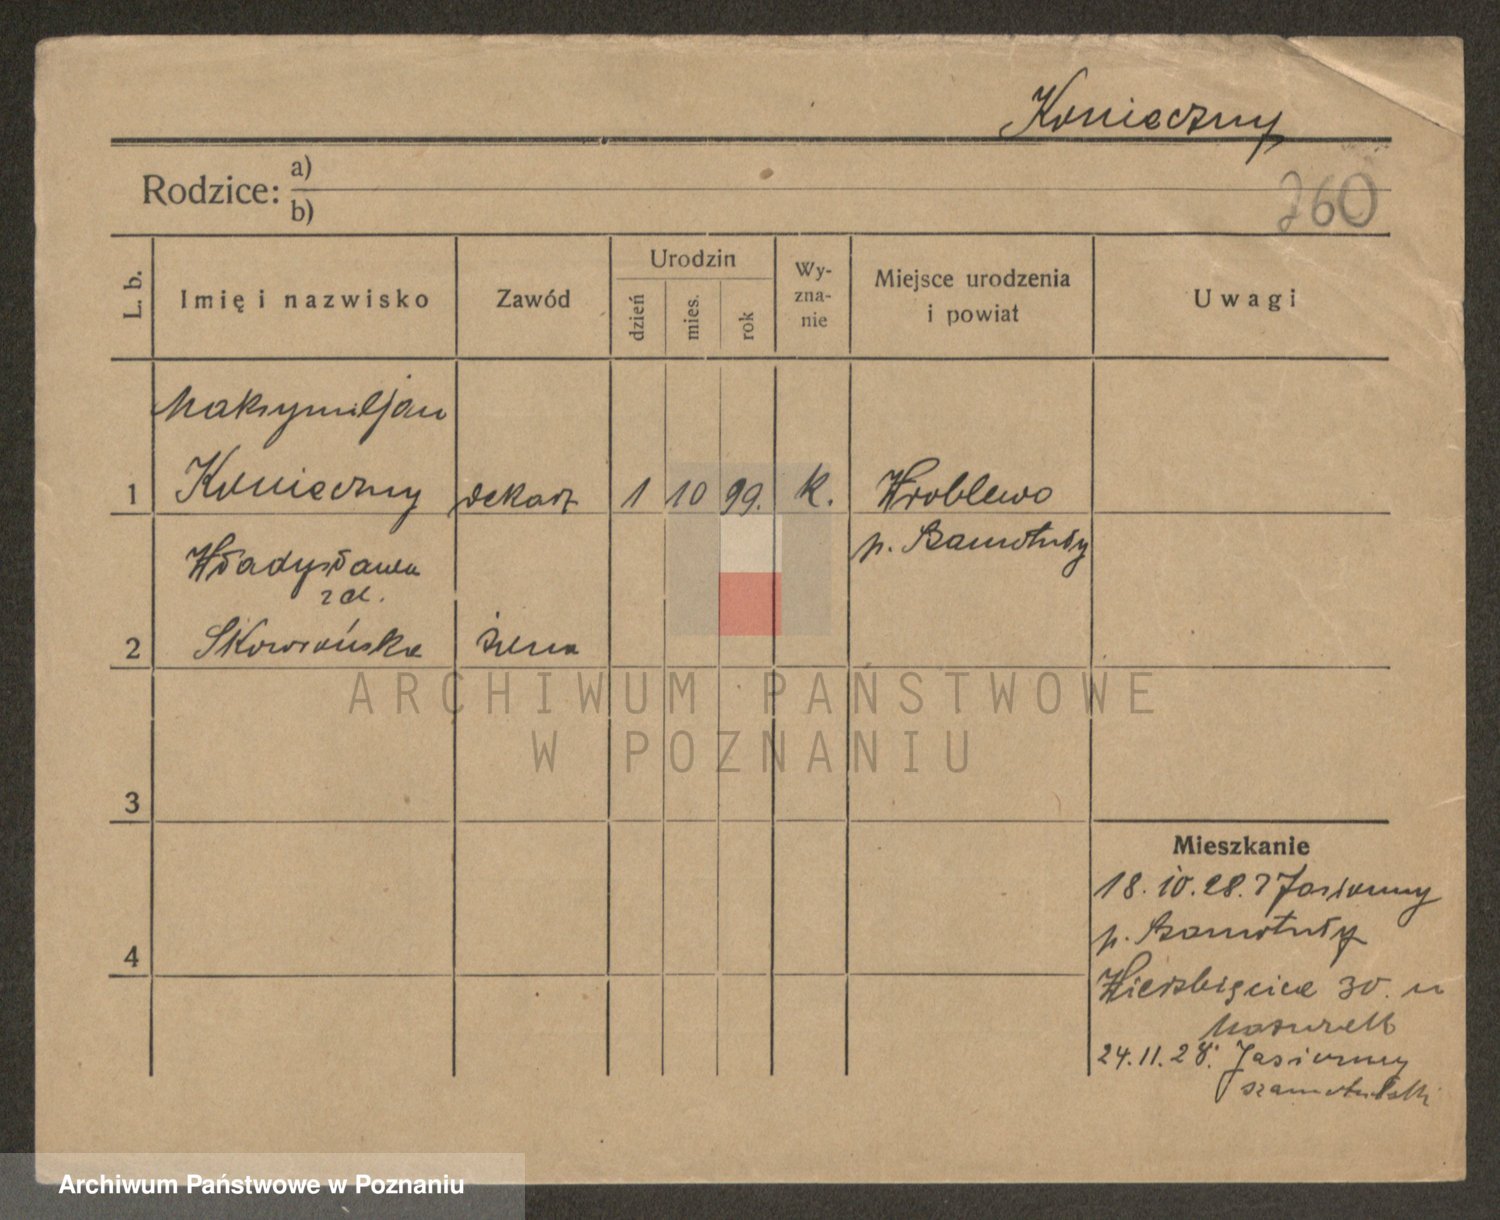 Konieczny
Rodzice: a)
b)
760
L. b.
Imię i nazwisko
Zawód
Urodzin
dzień
mies.
rok
Wy-
zna-
nie
Miejsce urodzenia
i powiat
Uwagi
Maksymiljan
1 Konieczny dekarz 1 10 99. k. Wroblewo
p. Szamotuły
Władysława
zd.
2 Skowrońska żona
ARCHIWUM PAŃSTWOWE
W POZNANIU
3
Mieszkanie
18.10.28. z Jasionny
p. Szamotuły
4
Wierzbięcice 30. u
24.11.28. Jasionny
szamotulski
Archiwum Państwowe w Poznaniu